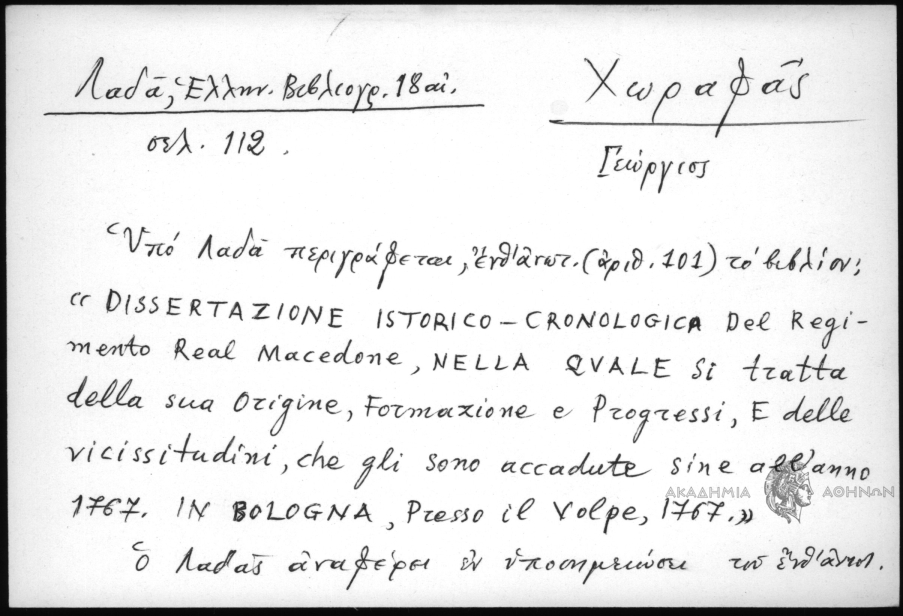 Λαδᾶ, Ἑλλην. Βιβλιογρ. 18 αἰ.
σελ. 112.
Χωραφᾶς
Γεώργιος
Ὑπό Λαδᾶ περιγράφεται, ἔνθ' ἀνωτ. (ἀριθ. 101) τό βιβλίον:
«DISSERTAZIONE ISTORICO-CRONOLOGICA Del Regi-
mento Real Macedone, NELLA QVALE Si tratta
della sua Origine, Formazione e Progressi, E delle
vicissitudini, che gli sono accadute sine all'anno
1767. IN BOLOGNA, Presso il Volpe, 1767.»
ΑΚΑΔΗΜΙΑ ΑΘΗΝΩΝ
Ὁ Λαδᾶς ἀναφέρει ἐν ὑποσημειώσει τοῦ ἔνθ' ἀνωτ.